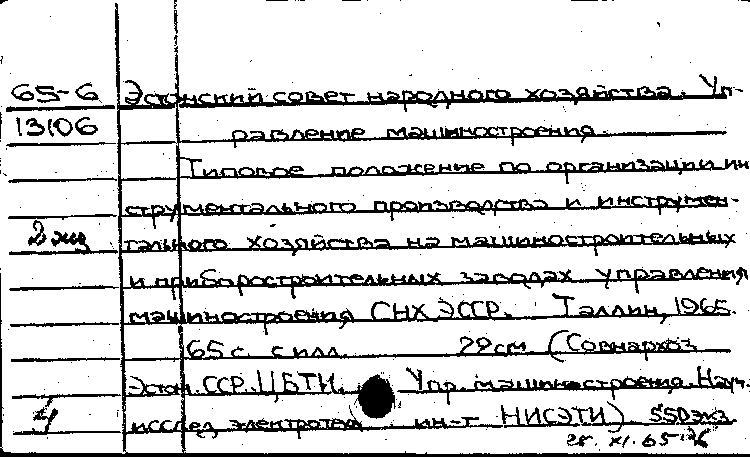 65-6 Эстонский совет народного хозяйства. Уп-
13106 равление машиностроения.
Типовое положение по организации ин
струментального производства и инструмен-
2 экз тального хозяйства на машиностроительных
и приборостроительных заводах управления
машиностроения СНХ ЭССР. Таллин, 1965.
65 с. с илл. 29 см (Совнархоз
Эстон. ССР. ЦБТИ. Упр. машиностроения. Науч.
исслед электротех ин-т НИСЭТИ) 550 экз